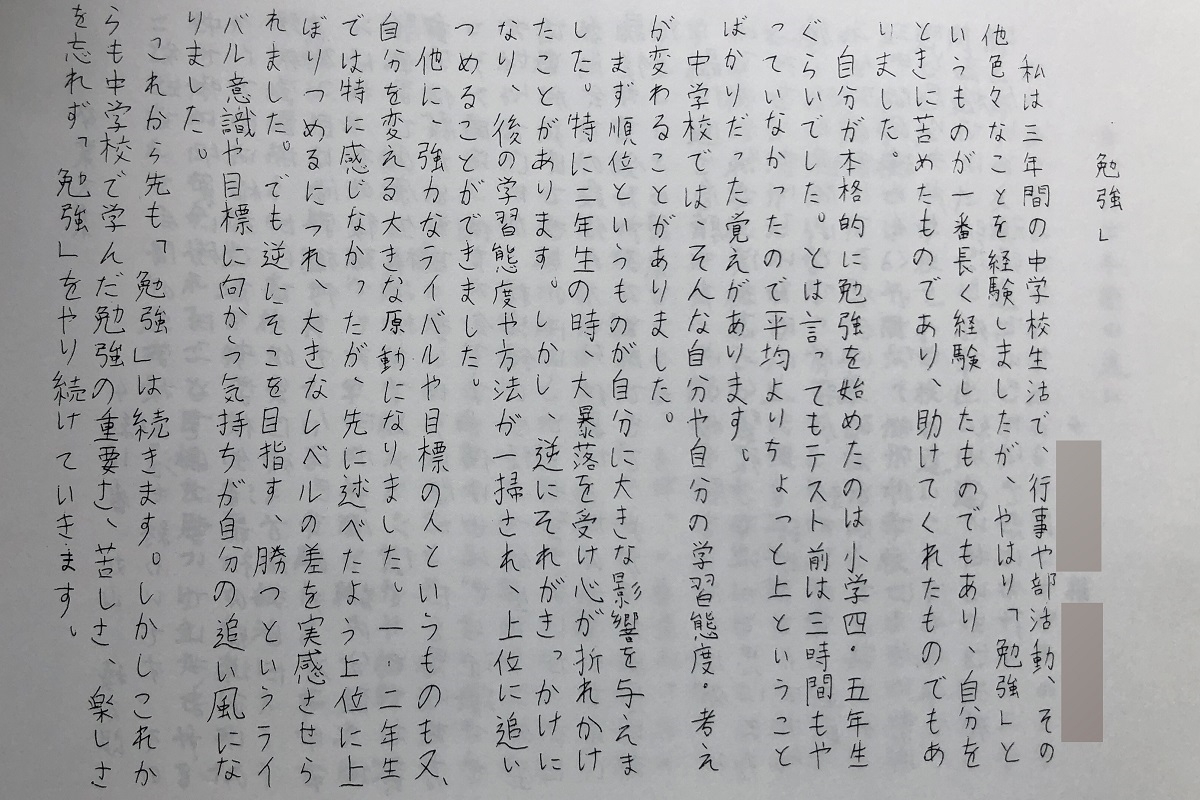 勉強」
私は三年間の中学校生活で、行事や部活動、その
他色々なことを経験しましたが、やはり「勉強」と
いうものが一番長く経験したものでもあり、自分を
ときに苦めたものであり、助けてくれたものでもあ
りました。
自分が本格的に勉強を始めたのは小学四・五年生
ぐらいでした。とは言ってもテスト前は三時間もや
っていなかったので平均よりちょっと上ということ
ばかりだった覚えがあります。
中学校では、そんな自分や自分の学習態度・考え
が変わることがありました。
まず順位というものが自分に大きな影響を与えま
した。特に二年生の時、大暴落を受け心が折れかけ
たことがあります。しかし、逆にそれがきっかけに
なり、後の学習態度や方法が一掃され、上位に追い
つめることができました。
他に、強力なライバルや目標の人というものも又、
自分を変える大きな原動になりました。一・二年生
では特に感じなかったが、先に述べたよう上位に上
ぼりつめるにつれ、大きなレベルの差を実感させら
れました。でも逆にそこを目指す、勝つというライ
バル意識や目標に向かう気持ちが自分の追い風にな
りました。
これから先も「勉強」は続きます。しかしこれか
らも中学校で学んだ勉強の重要さ、苦しさ、楽しさ
を忘れず「勉強」をやり続けていきます。